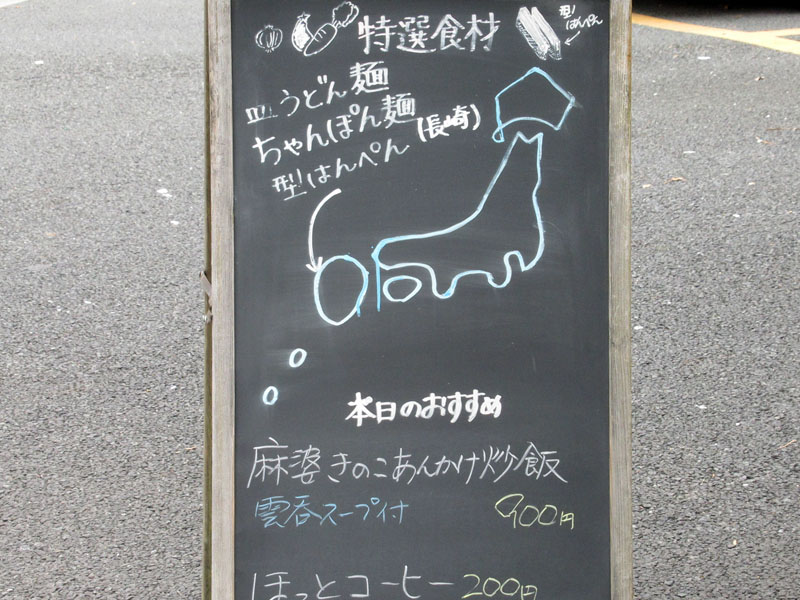 特選食材
型はんぺん
皿うどん麺
ちゃんぽん麺
(長崎)
型はんぺん
本日のおすすめ
麻婆きのこあんかけ炒飯
雲呑スープ付 900円
ほっとコーヒー200円